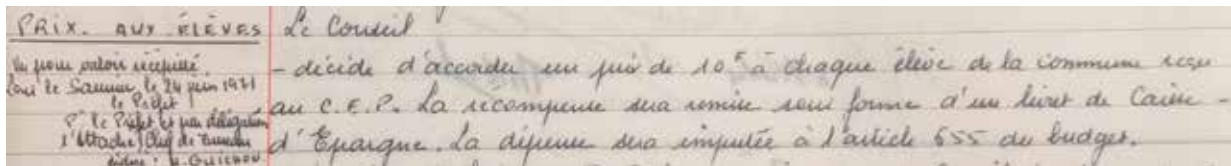 PRIX. AUX ÉLÈVES
Vu pour valoir récépissé
Lons le Saunier, le 24 juin 1971
le Préfet
Pr le Préfet et par délégation
l'Attaché, Chef de Bureau
signé : M. GUICHOU
Le Conseil
- décide d'accorder un prix de 10F à chaque élève de la commune reçu
au C.E.P. La récompense sera remise sous forme d'un livret de Caisse -
d'Epargne. La dépense sera imputée à l'article 655 du budget.